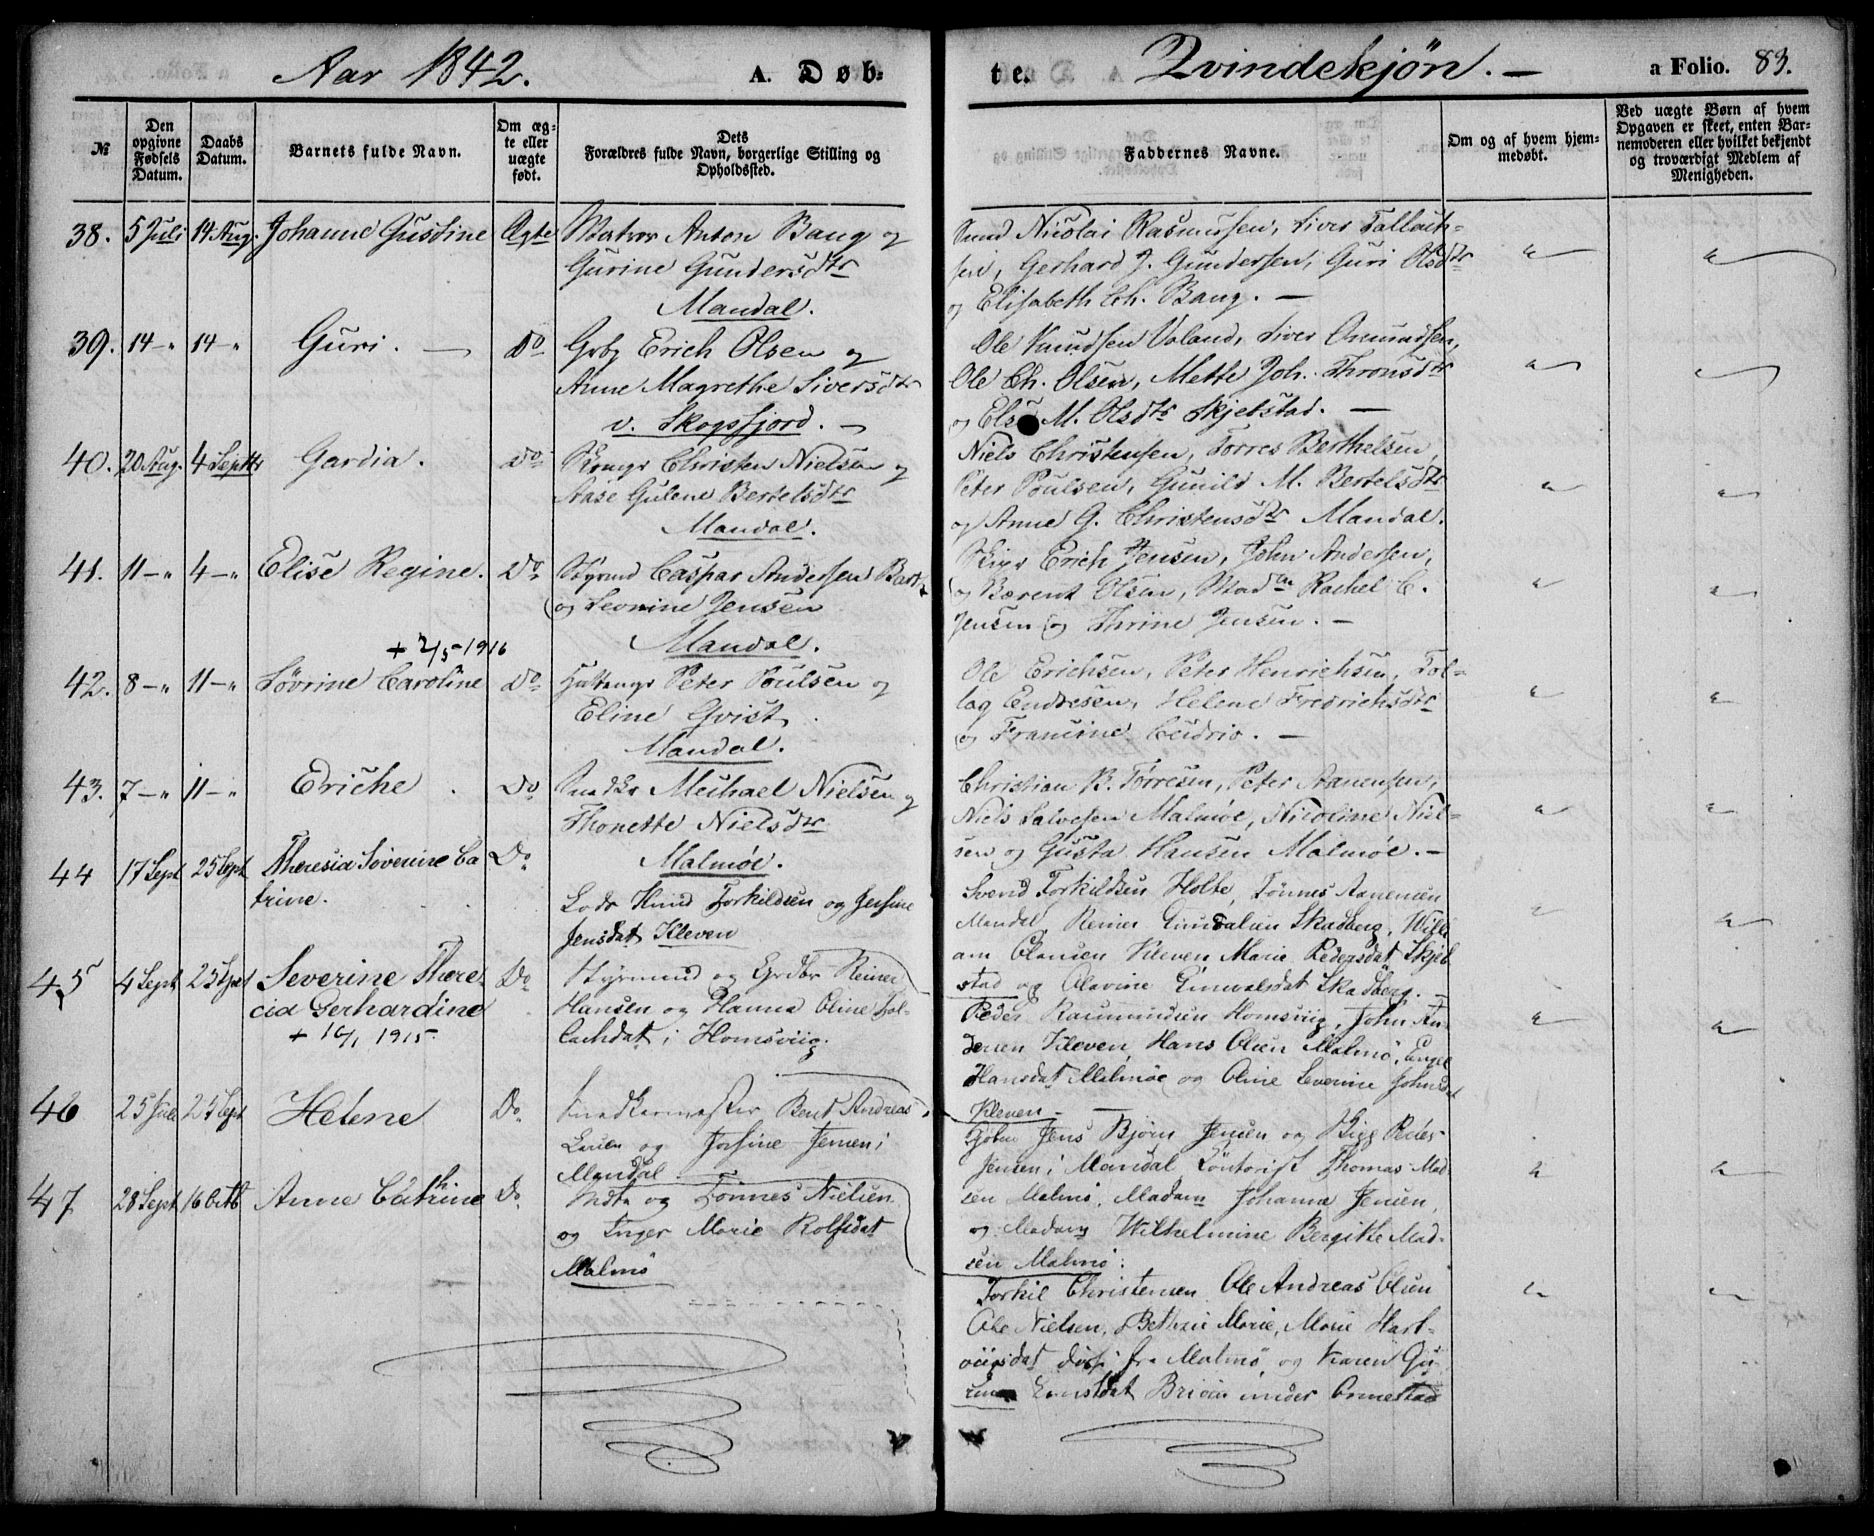 Aar 1842.
A. Døb-
№
Den opgivne Fødsels Datum.
Daabs Datum.
Barnets fulde Navn.
Om ægte eller uægte født.
Dets Forældres fulde Navn, borgerlige Stilling og Opholdssted.
38. 5 Juli 14 Aug. Johanne Gustine Ægte Matros Anton Bang og
Gurine Gundersdtr
Mandal.
39. 14 - " 14 - " Guri. — Do Grbr Erich Olsen og
Anne Magrethe Siversdtr
v. Skogsfjord. —
40. 20 Aug. 4 Septbr Gardia. do Christen Nielsen og
Aase Gulene Bertelsdtr
Mandal.
41. 11 - " 4 - " Elise Regine. Do Styrmd Caspar Andersen
og Leonine Jensen
Mandal.
+ 2/5 - 1916
42. 8 - " 11 - " Søvrine Caroline Do Peter Poulsen og
Eline Qvist
Mandal.
43. 7 - " 11 - " Eriche Do Snedkr Michael Nielsen og
Thonette Nielsdtr
Malmøe.
44 17 Sept 25 Sept Theresia Søverine Ca Do
trine.
Lods Torkildsen og Josine
Jensdat Kleven
45 4 Sept 25 Sept Severine There- Do Styrmand og Reiner
cia Gerhardine Hansen og Hanna Oline Tol-
+ 16/1 1915 lachdat i Homsviig.
46 25 Juli 25 Sept Helene Do. Snedkermester Bent Andreas
og Josine Jensen i
Mandal
47 28 Sept 16 Octb Anne Cathrine Do Tønnes Nielsen
og Inger Marie Rolfsdat
Malmö
te.
Qvindekjøn. —
a Folio. 83.
Faddernes Navne.
Om og af hvem hjemmedøbt.
Ved uægte Børn af hvem Opgaven er skeet, enten Barnemoderen eller hvilket bekjendt og troværdigt Medlem af Menigheden.
Nicolai Rasmussen, Siver Tallach-
sen, Gerhard J. Gundersen, Guri Olsdtr
og Elisabeth Ch. Bang. —
Ole Knudsen Valand, Siver Omundsen,
Ole Ch. Olsen, Mette Joh. Thronsdtr
og Else M. Olsdtr Skjebstad. —
Niels Christensen, Torres Berthelsen,
Peter Poulsen, Gunild M. Bertelsdtr
og Anne G. Christensdtr Mandal.
Skipr Erich Jensen, John Andersen,
og Berent Olsen, Madm Rachel C.
Jensen og Thrine Jensen. —
Ole Erichsen, Peter Henrichsen, Tol-
lag Endresen, Helene Fredrichsdtr
og Francine Cudrio. —
Christian B. Tørresen, Peter Aanensen,
Niels Salvesen Malmøe, Nicoline Niel-
sen og Gusta Hansen Malmøe. —
Svend Torkildsen Holte, Tønnes Aanensen
Mandal, Reiner Skadberg, Willi
am Clausen Kleven Marie Pedersdat Skjeb
stad og Olavine Skadberg. —
Peder Rasmundsen Homsviig, John An-
dersen Kleven, Hans Olsen Malmö, Engel
Hansdat Malmøe og Oline Severine Johnsdat
Kleven —
Jens Bjørn Jensen og Skipp Peder
Jensen i Mandal, Thomas Mad
sen Malmö, Madam Johanna Jensen,
og Madam Wilhelmine Bergitte Mad-
sen Malmö.
Torkil Christensen Ole Andreas Olsen
Ole Nielsen, Marie, Marie Hart-
viigsdat fra Malmö og Karen Gu-
under